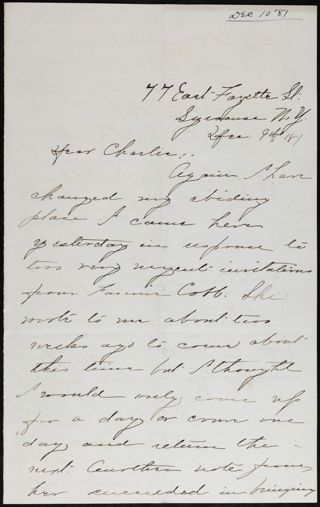 Dec 10 '81
77 East Fayette St.
Syracuse N.Y.
Dec 9th /81
Dear Charlie,
Again I have
changed my abiding
place I came here
yesterday in response to
two very urgent invitations
from Fannie Cobb. She
wrote to me about two
weeks ago to come about
this time but I thought
I would only come up
for a day or come one
day, and return the
next. Another note from
her succeeded in bringing